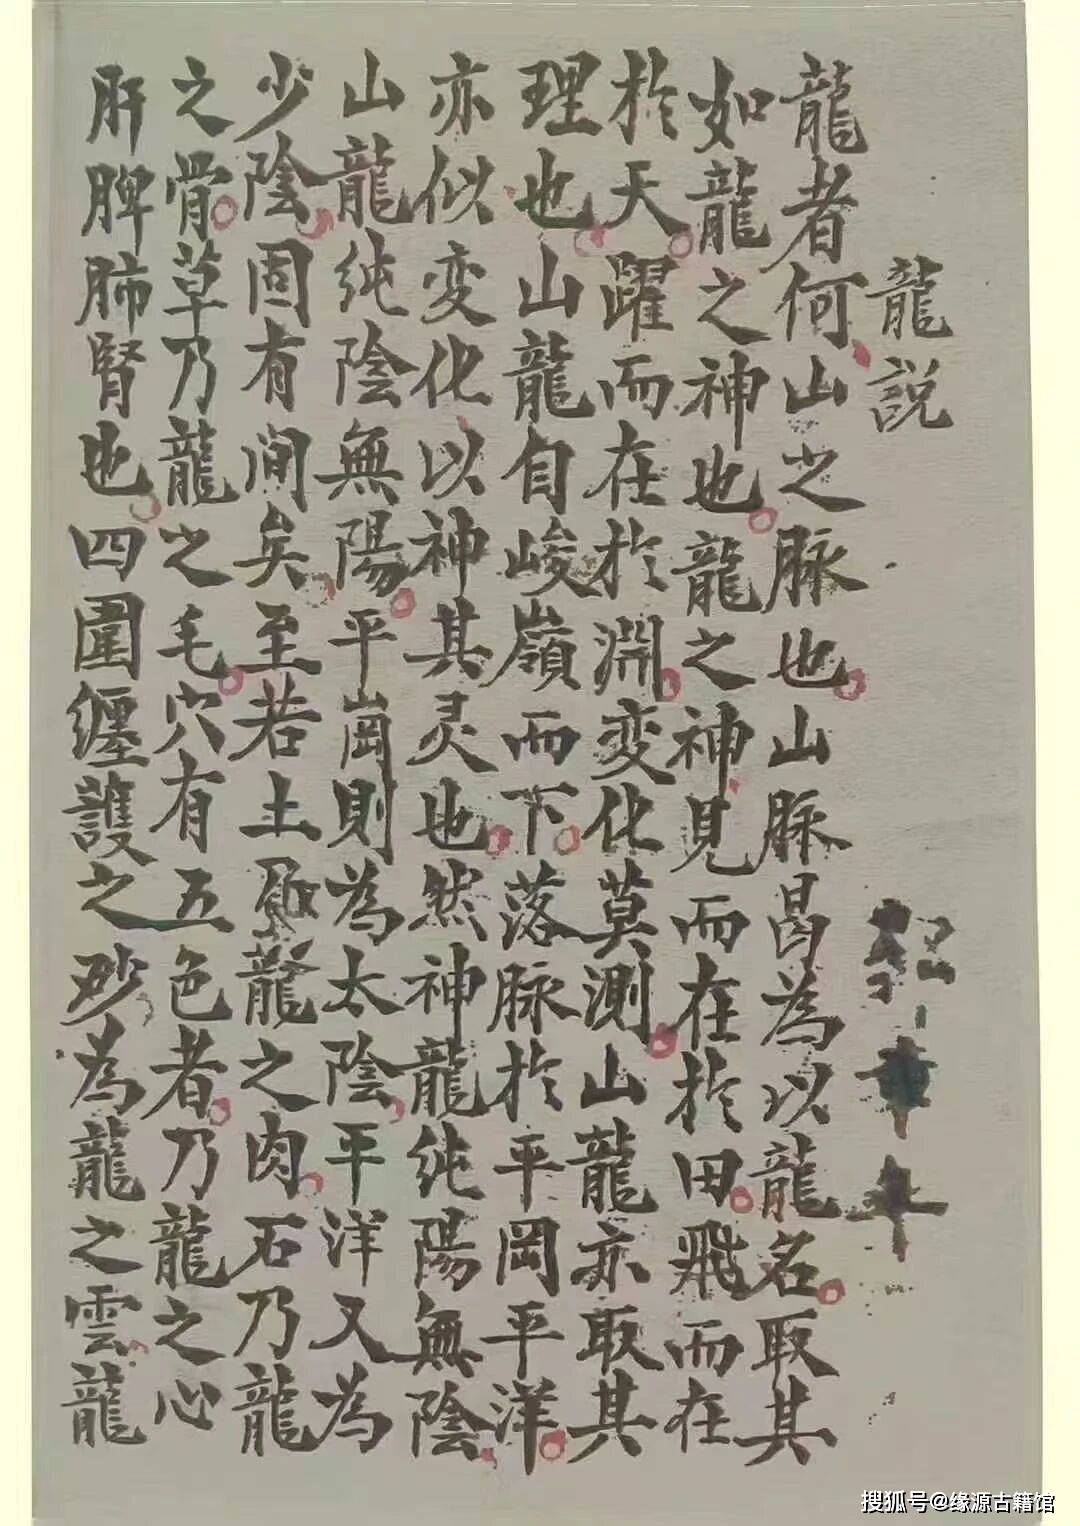 龍說
龍者何山之脉也山脉曷為以龍名取其
如龍之神也龍之神見而在於田飛而在
於天躍而在於淵变化莫測山龍亦取其
理也山龍自峻嶺而下落脉於平岡平洋
亦似变化以神其灵也然神龍純陽無陰
山龍純陰無陽平崗則為太陰平洋又為
少陰固有间矣至若土龍之肉石乃龍
之骨草乃龍之毛穴有五色者乃龍之心
肝脾肺腎也四圍纏護之砂為龍之雲龍
搜狐号@缘源古籍馆